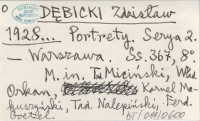 DĘBICKI Zdzisław
1928... Portrety. Serya 2.
— Warszawa. Ss. 367, 8°
M. in. T. Miciński, Wład
Orkan, Kornel Ma-
kuszyński, Tad. Nalepiński, Ferd.
Goetel.